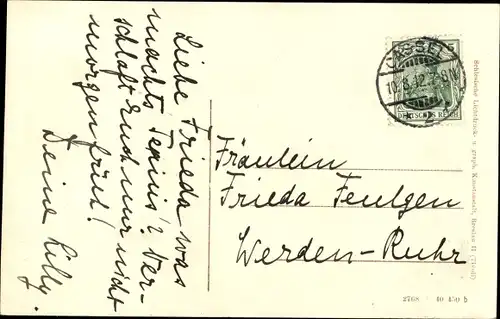 Liebe Frieda was
machts Tennis? Ver-
schlaft Euch nur nicht
morgen früh!
Deine Lilly.
CASSEL
10.8.12. 7-8N
DEUTSCHES REICH
5
Fräulein
Frieda Feulgen
Werden-Ruhr
Schlesische Lichtdruck- u. graph. Kunstanstalt, Breslau II
2768 40 450 b